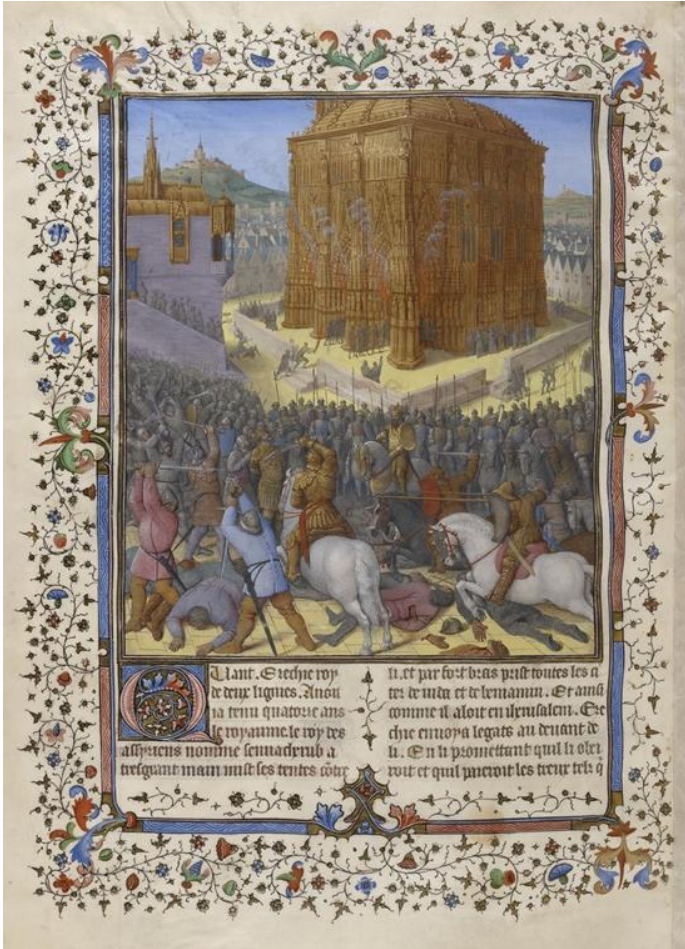 Quant. Ezechie roy
de deux lignes. Auoit
ia tenu quatorze ans
le royaume. le roy des
assyriens nomme sennacherib a
tresgrant main mist ses tentes cōtre
li. et par fort bras prist toutes les ci
tez de iuda et de beniamin. Et ainsi
comme il aloit en iherusalem. Eze
chie enuoya legats au deuant de
li. En li promettant quil li obei
roit et quil paieroit les treux telz q̄